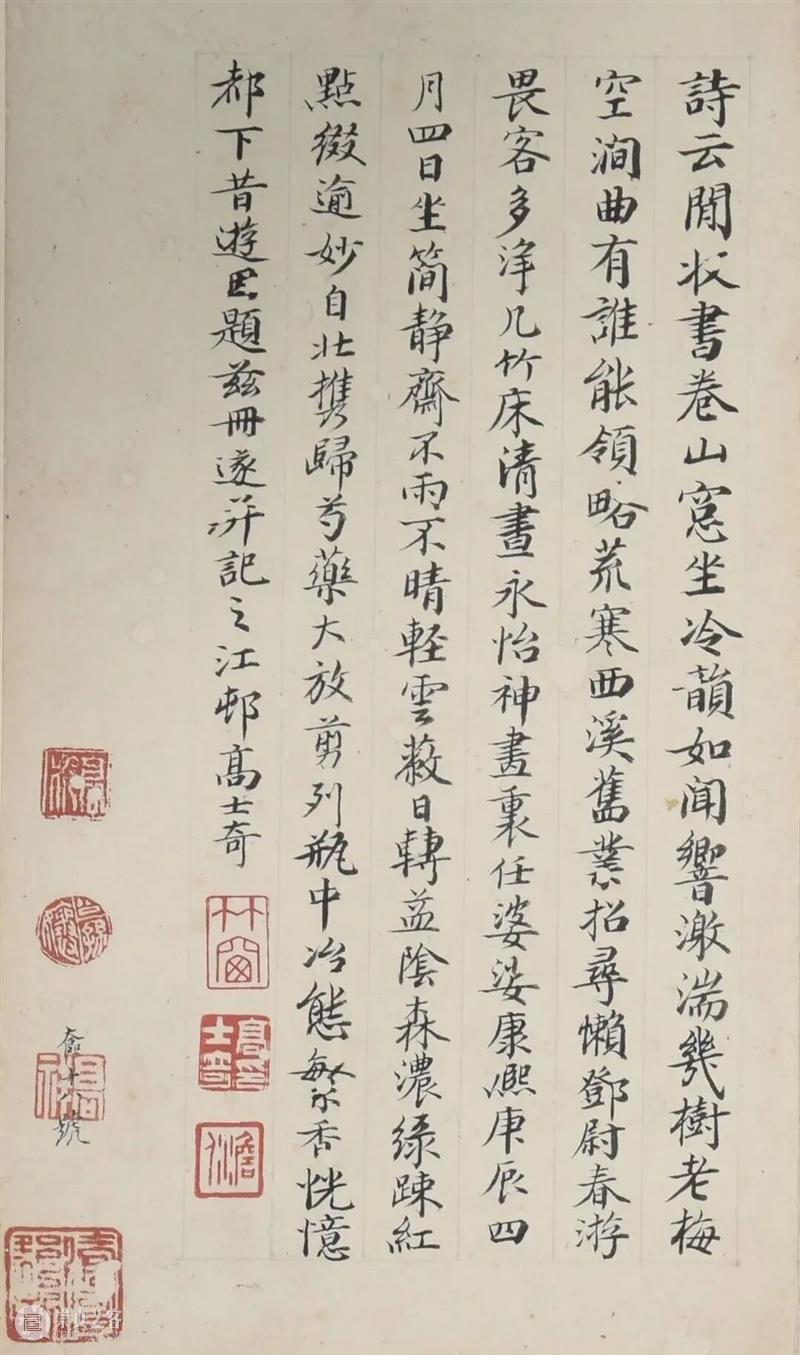 詩云閒收書卷山窓坐冷韻如闻響激湍幾樹老梅
空澗曲有誰能領略荒寒西溪舊業招尋懶鄧尉春游
畏客多淨几竹床清晝永怡神畫裏任婆娑康熙庚辰四
月四日坐簡静齋不雨不晴輕雲蔽日轉益陰森濃绿踈紅
點綴逾妙自北携歸芍藥大放剪列瓶中冶態繁香恍憶
都下昔遊因題兹冊遂并記之江邨高士奇
竹窗
高士奇